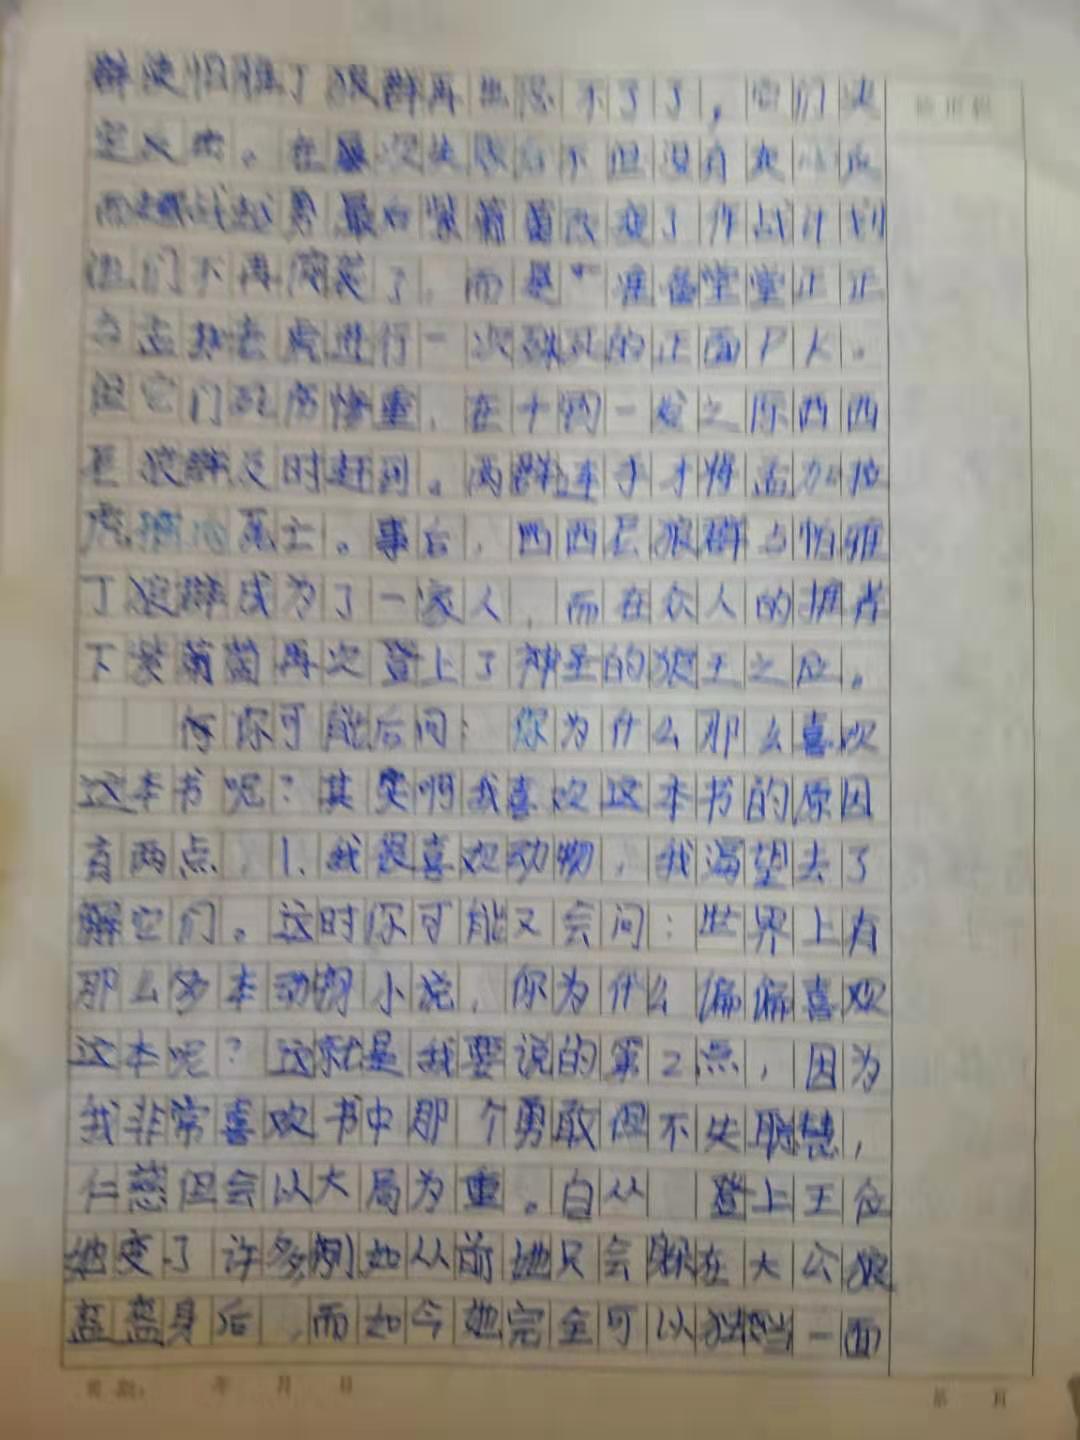 群使怕雅丁狼群再也忍不了了，它们决
定反击。在屡次失败后不但没有灰心反
而越战越勇最后紫葡萄改变了作战计划
她们不再偷袭了，而是准备堂堂正正
与孟加拉老虎进行一次的正面
但它们死伤惨重，在千钧一发之际西西
尼狼群及时赶到。两群连手才将孟加拉
虎死亡。事后，西西尼狼群与怕雅
丁狼群成为了一家人，而在众人的推荐
下紫葡萄再次登上了神圣的狼王之位。
你可能后问：你为什么那么喜欢
这本书呢？其实啊我喜欢这本书的原因
有两点，1.我很喜欢动物，我渴望去了
解它们。这时你可能又会问：世界上有
那么多本动物小说，你为什么偏偏喜欢
这本呢？这就是我要说的第2点，因为
我非常喜欢书中那个勇敢但不失聪慧，
仁慈但会以大局为重。自从 登上王位
她变了许多例如从前她只会躲在大公狼
盔盔身后，而如今她完全可以独当一面